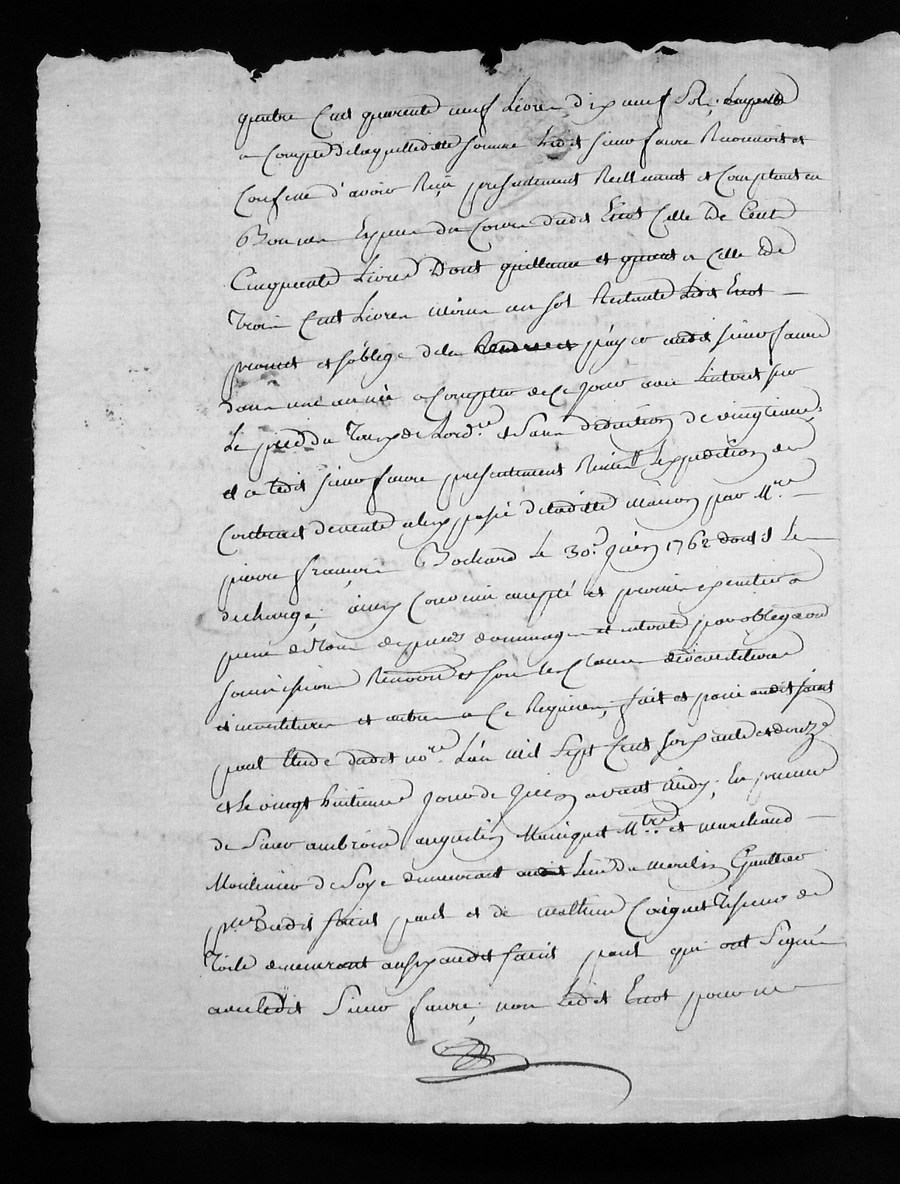 quatre Cent quarente neuf Livres dix neuf Sols,
a Compte de laquelleditte somme Ledit sieur favre Reconnoit et
Confesse d'avoir Reçu presentement Reellement et Comptant en
Bonnes Especes du Cours dudit Enot Celle De Cent
Cinquante Livres Dont quittance et quant a Celle De
Trois Cent Livres un sol Restante Ledit Enot
promet et s'oblige de la payer audit sieur favre
dans une année a Compter de Ce jour avec L'interet sur
Le pied du Taux de Lord.re et sans deduction de vingtieme,
et a Ledit sieur favre presentement Remis L'expedition du
Contract de vente a luy passé de laditte maison par M.re
pierre françois Bochard Le 30.e juin 1762 dont il Le
decharge; ainsy Convenu accepté et promis executer a
peine de tous depens dommages et interets par obligaon
soumission Renonon et sous les Clauses de Constitution
investitures et autres a Ce Requises, fait et passé audit saint
paul Etude dudit no.re L'an mil Sept Cent soixante et douze
et Le vingt huitieme jour de juin avant midy; En presence
de Sieur ambroise augustin Muniquet M.tre et marchand
Moulinier de Soye demeurant audit Lieu du moulin Gaultier
p.sse dudit saint paul et de mathieu Coignet Tisseur de
Toile demeurant aussy audit saint paul qui ont Signé
avec Ledit Sieur favre; non Ledit Enot pour ne